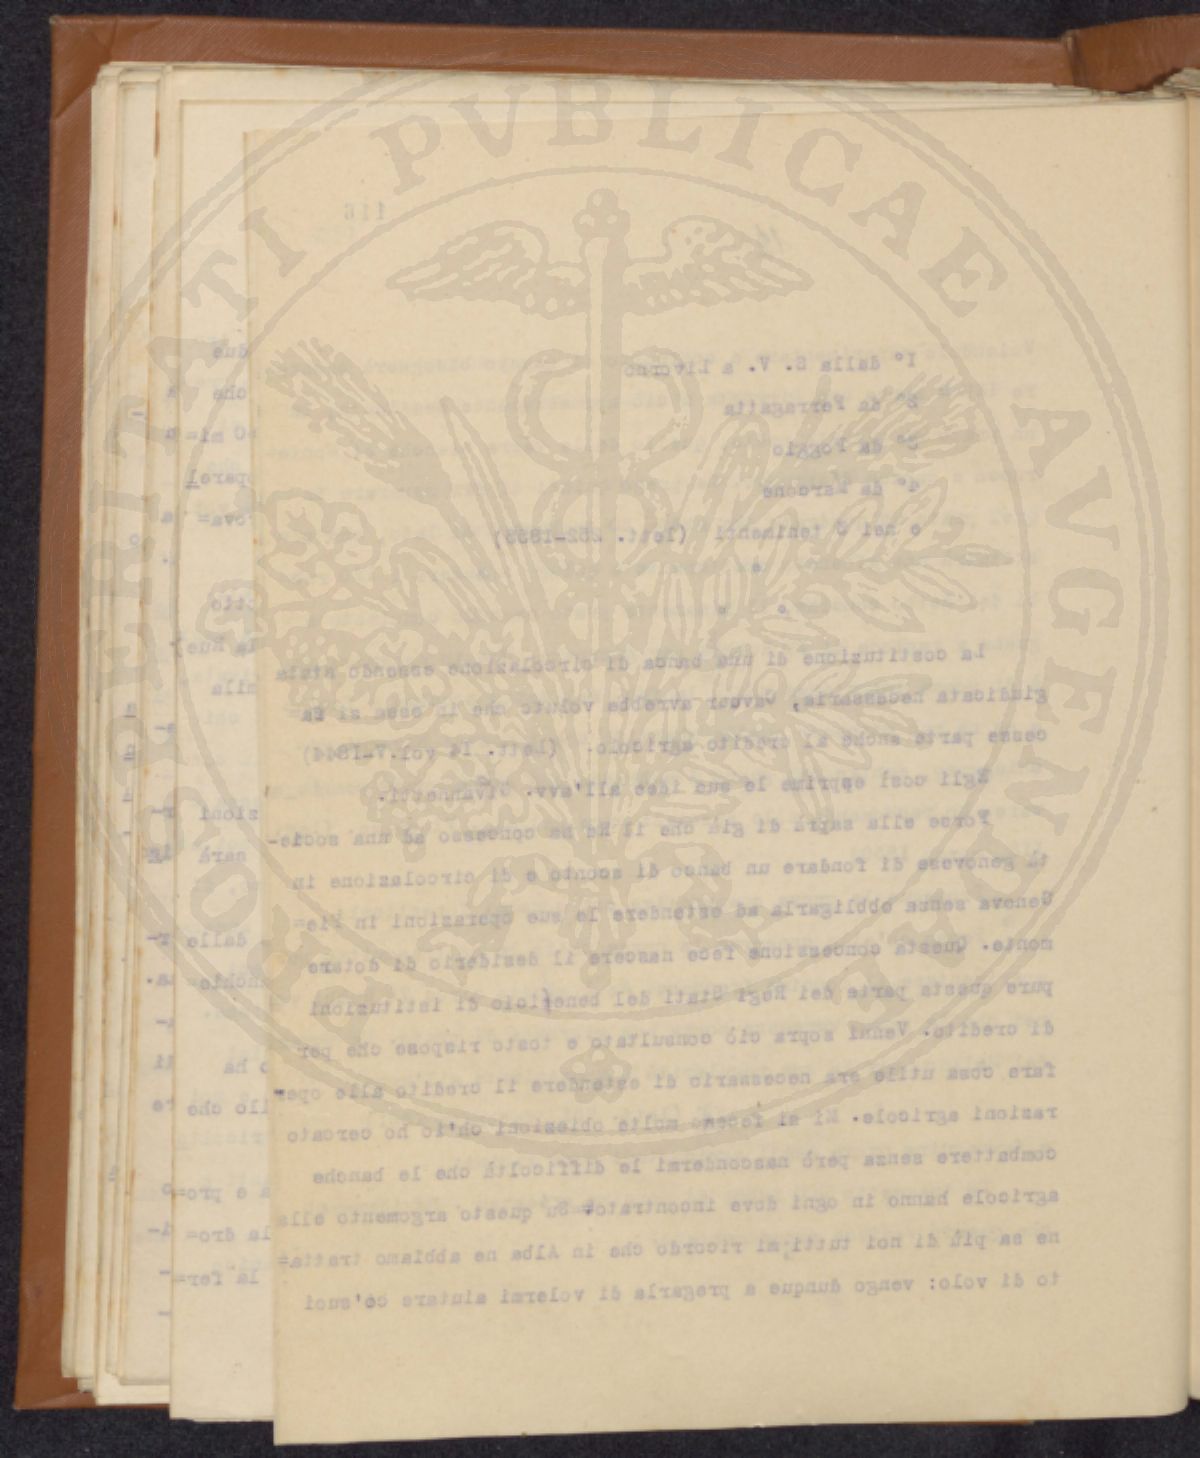 PROSPERITATI PVBLICAE AVGENDAE
116
1° dalla S. V. a Livorno
2° da Ferragatta
3° da Poggio
4° da Marcone
e nei 3 tenimenti (lett. 252-1835)
La costituzione di una banca di circolazione essendo stata
giudicata necessaria, Cavour avrebbe voluto che in essa si fa=
cesse parte anche al credito agricolo. (Lett. 14 vol.V-1844)
Egli così esprime le sue idee all'avv. Giovannetti.
Forse ella saprà di già che il Re ha concesso ad una socie-
tà genovese di fondare un banco di sconto e di circolazione in
Genova senza obbligarla ad estendere le sue operazioni in Pie=
monte. Questa concessione fece nascere il desiderio di dotare
pure questa parte dei Regi Stati del beneficio di istituzioni
di credito. Venni sopra ciò consultato e tosto risposi che per
fare cosa utile era necessario di estendere il credito alle ope=
razioni agricole. Mi si fecero molte obiezioni ch'io ho cercato
combattere senza però nascondermi le difficoltà che le banche
agricole hanno in ogni dove incontrato. Su questo argomento ella
ne sa più di noi tutti; mi ricordo che in Alba ne abbiamo tratta=
to di volo: vengo dunque a pregarla di volermi aiutare co' suoi
due
che
mi=
otto
zioni
sarà
dalle
ha
llo che
a e pro=
la dro=
la fer=